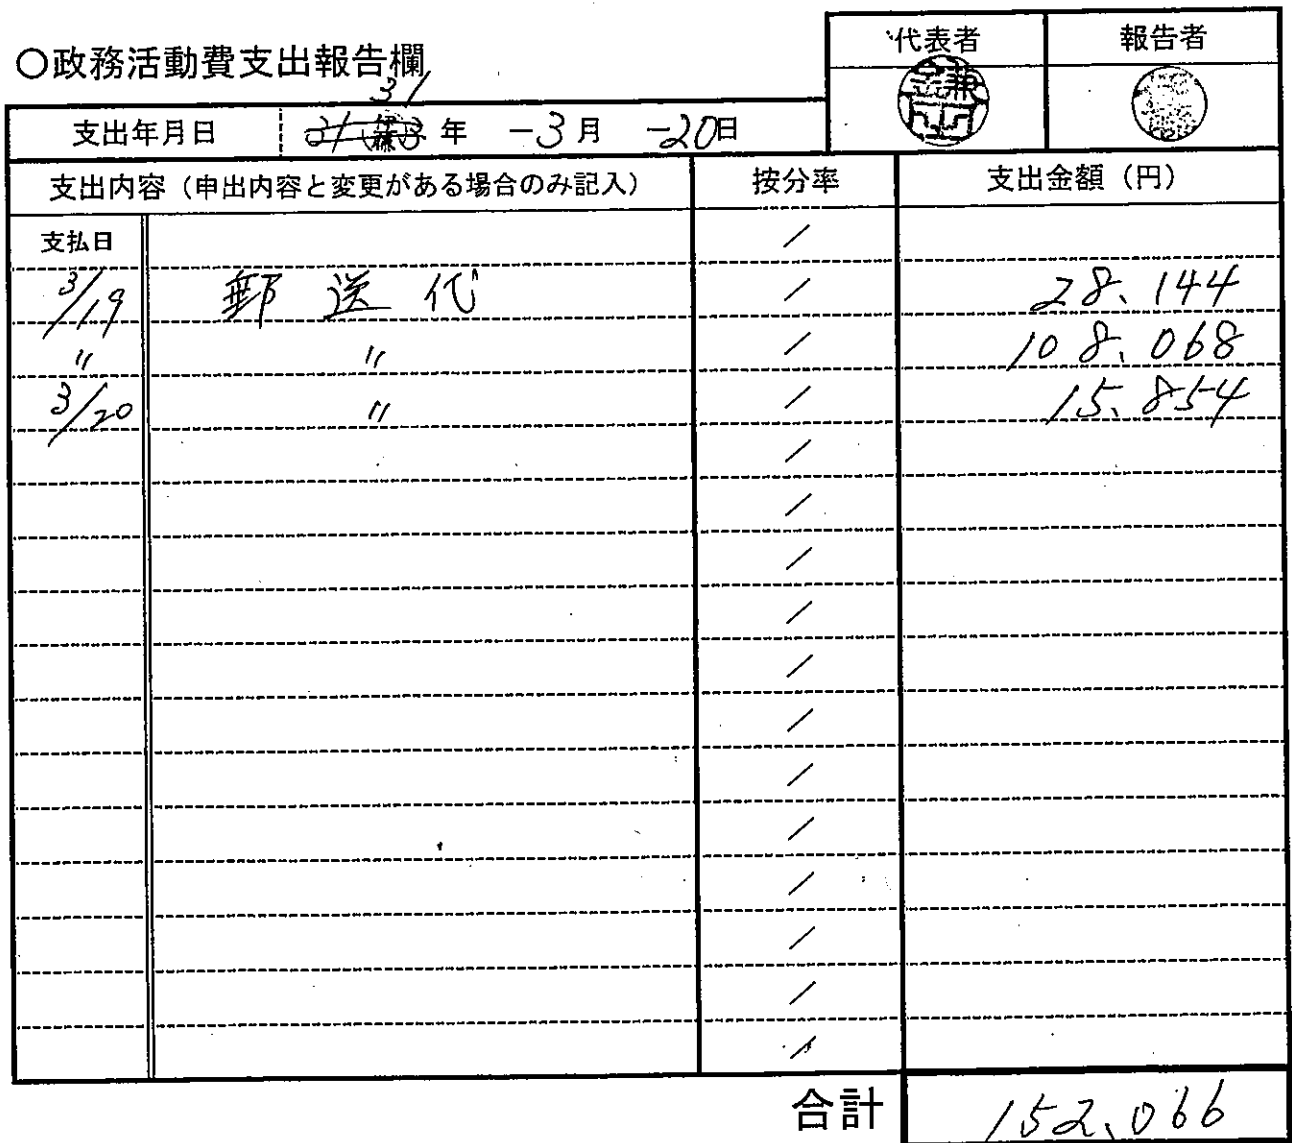 ○政務活動費支出報告欄
代表者 報告者
31
支出年月日 年 -3月 -20日
支出内容（申出内容と変更がある場合のみ記入） 按分率 支出金額（円）
支払日 /
3/19 郵送代 / 28.144
〃 〃 / 108.068
3/20 〃 / 15.854
/
/
/
/
/
/
/
/
/
/
/
/
合計 152.066